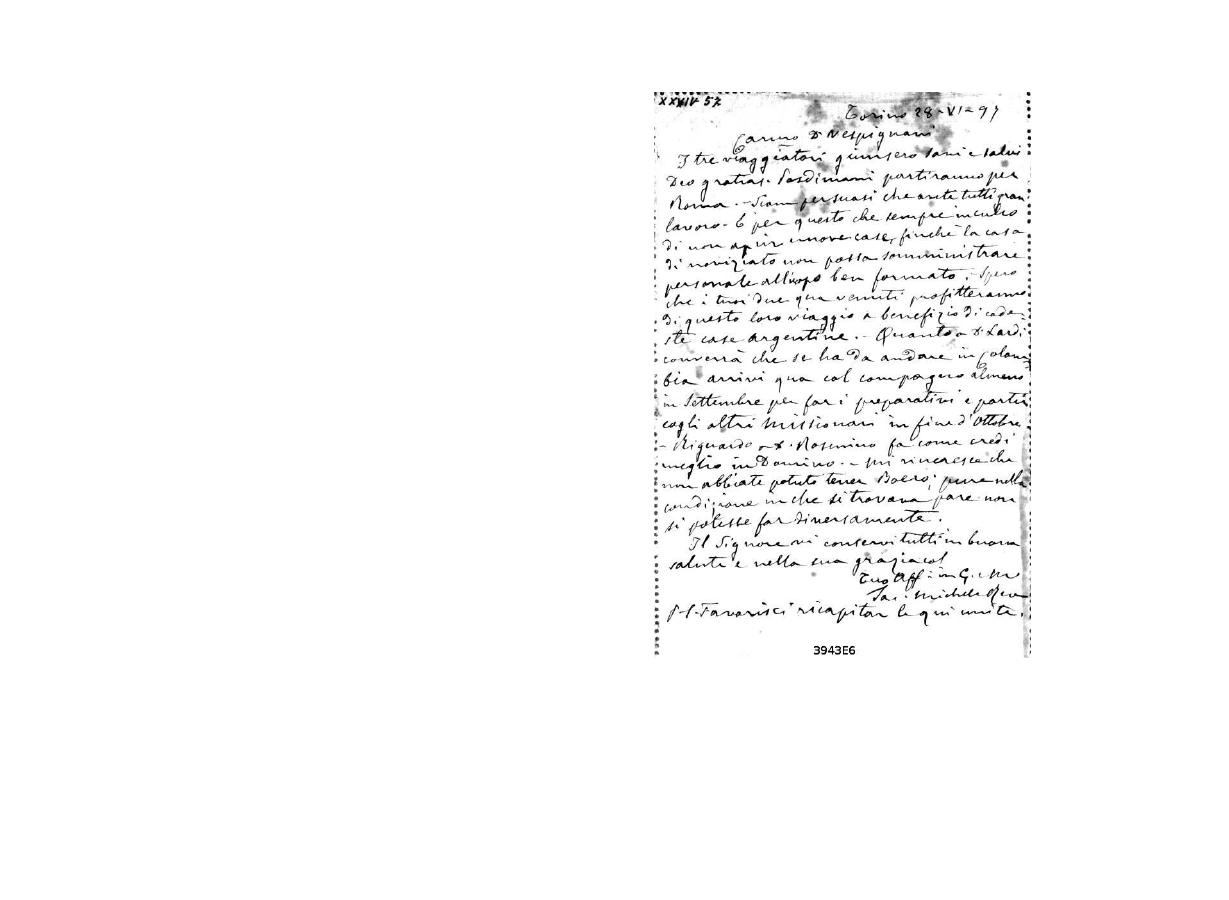 XXXIV 57
Torino 28-VI-97
Carmo D Vespignani
I tre viaggiatori giunsero sani e salvi
Deo gratias. Posdimani partiranno per
Roma. - Siam persuasi che avete tutti gran
lavoro. È per questo che sempre inculco
di non aprir nuove case, finchè la casa
di noviziato non possa somministrare
personale all'uopo ben formato. - Spero
che i tuoi due qua venuti profitteranno
di questo loro viaggio a benefizio di code
ste case argentine. - Quanto a D.
converrà che se ha da andare in Colom
bia arrivi qua col compagno almeno
in Settembre per far i preparativi e partir
cogli altri missionari in fine d'Ottobre
- Riguardo a D. fa come credi
meglio in Domino. - Mi rincresce che
non abbiate potuto tener Boero; pure nella
condizione in che si trovava pare non
si potesse far diversamente.
Il Signore vi conservi tutti in buona
salute e nella sua grazia col
Tuo Aff. in G. e M
Sac. Michele Rua
P.S. Favorisci ricapitar le qui unite.
3943E6